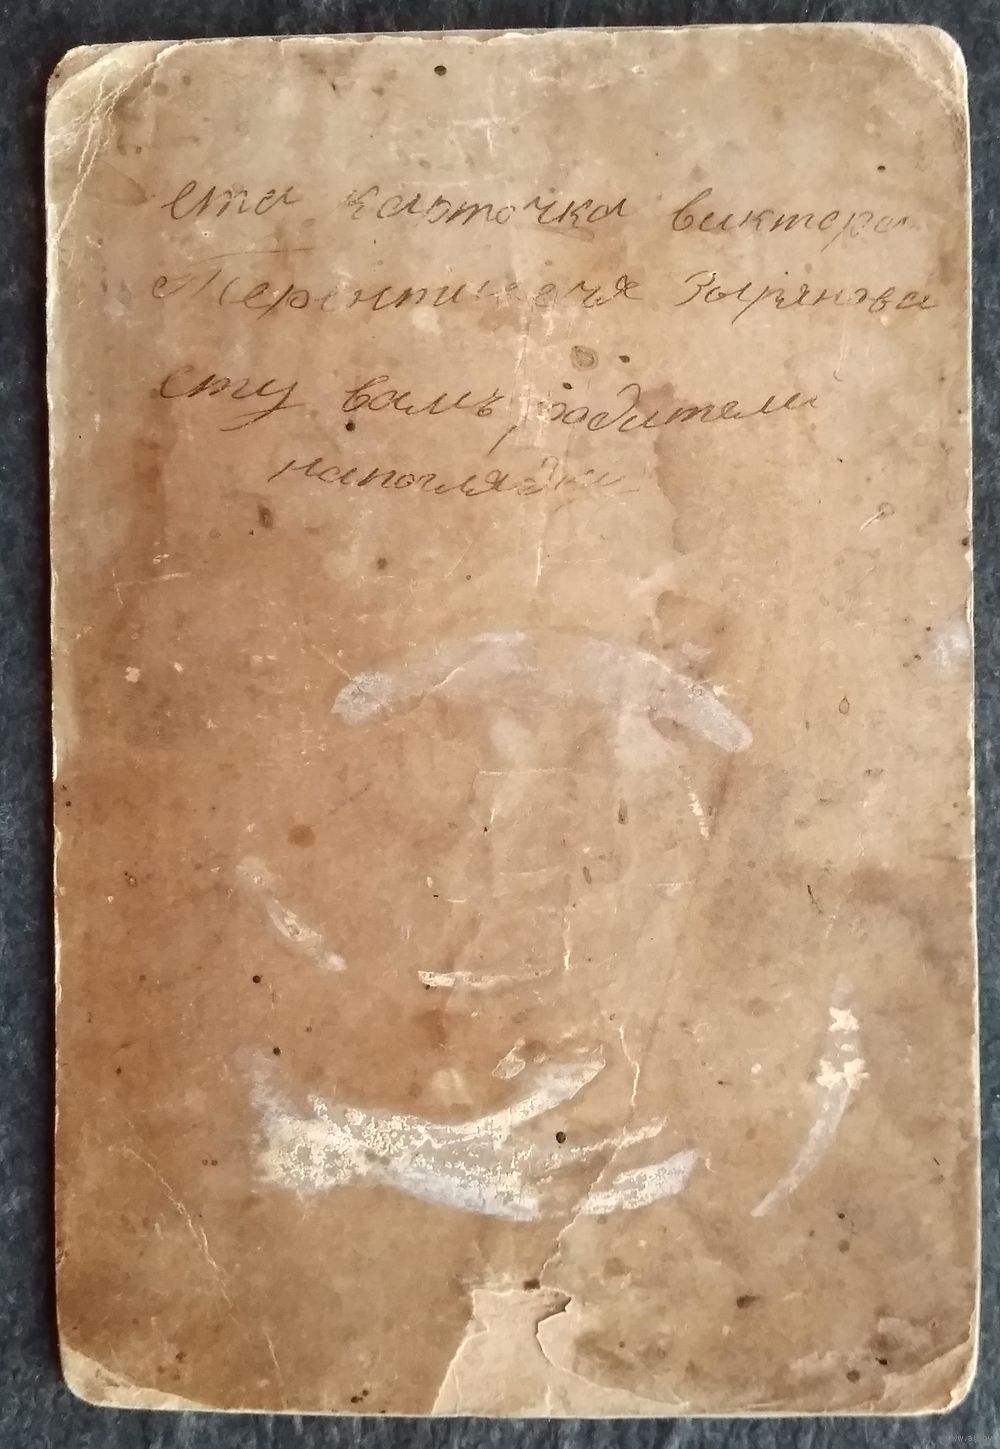 ета карточка виктора
Терентиевичя Зырянова
ету вамъ родители
напоглядки